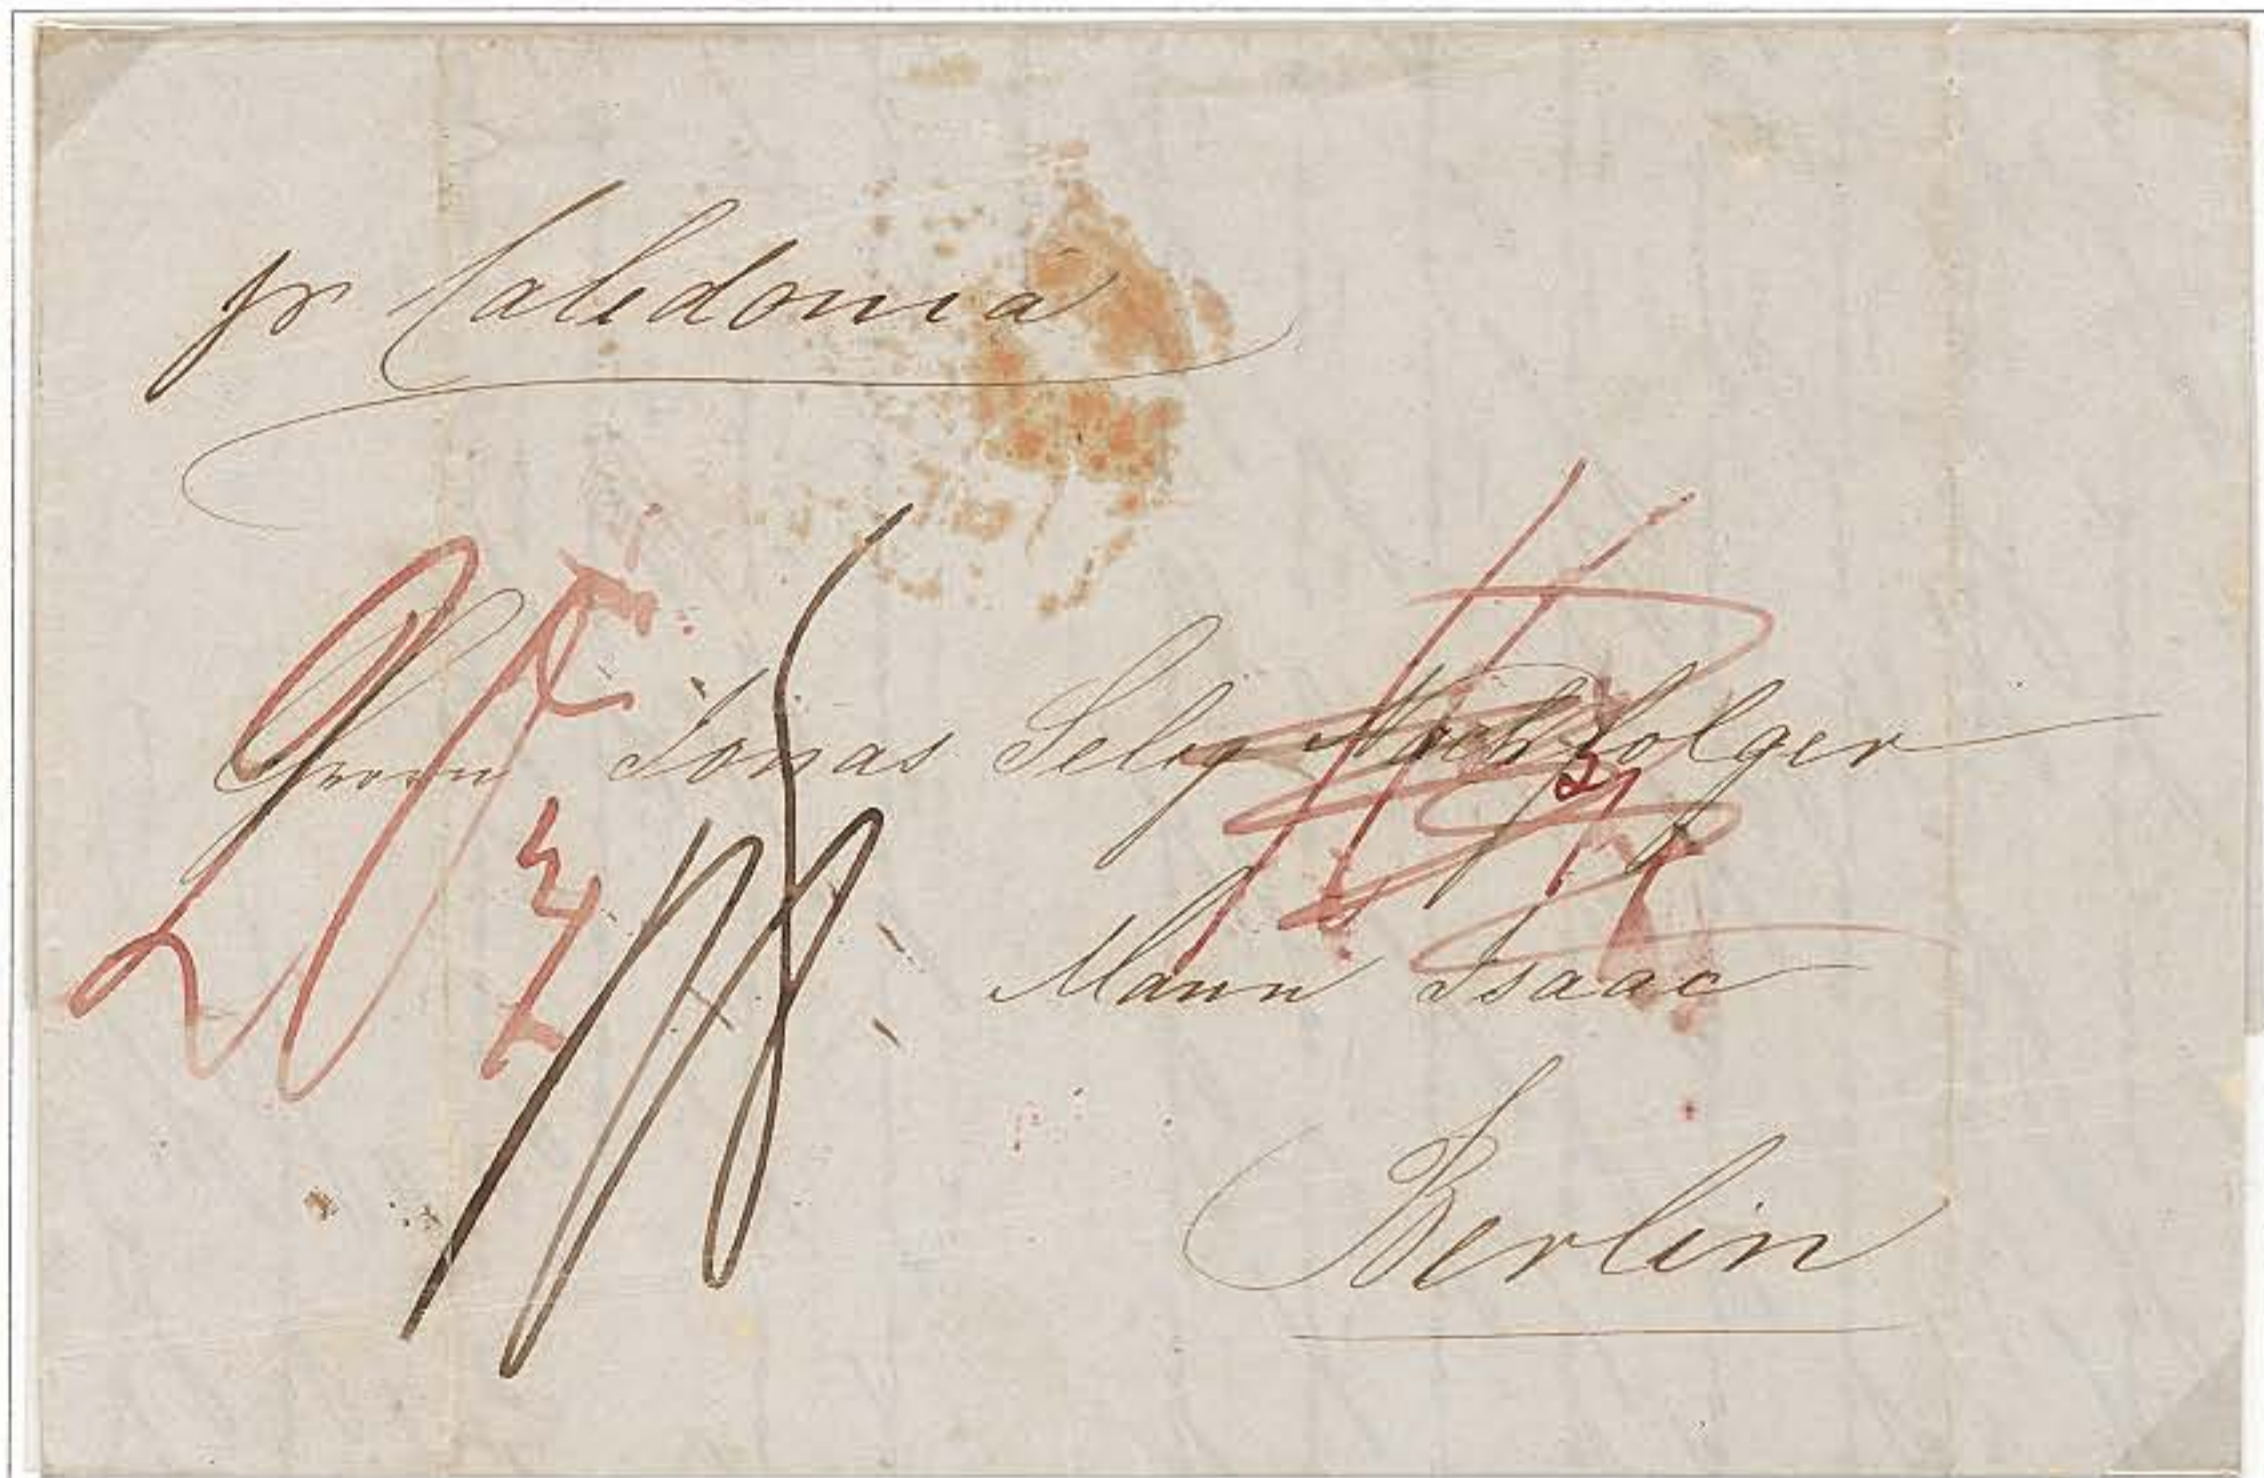 pr Caledonia
Herrn Jonas Selig Nachfolger
Mann Isaac
Berlin